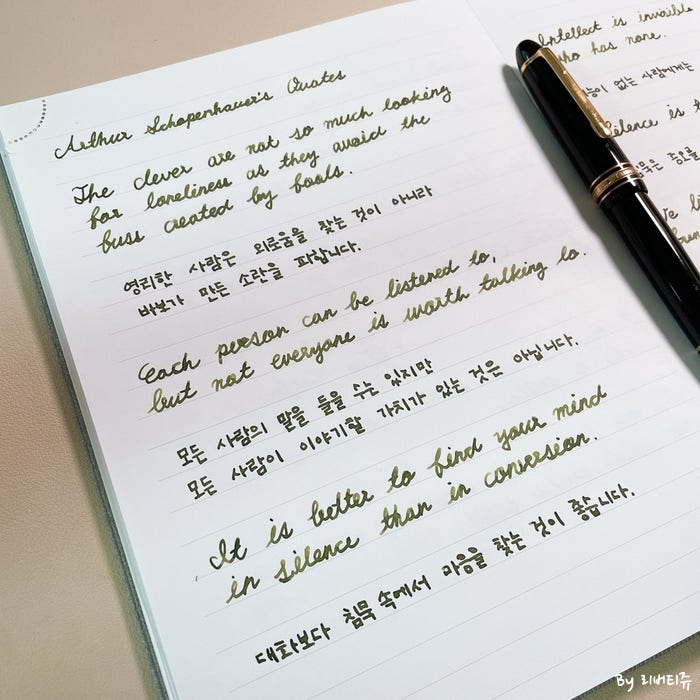 Arthur Schopenhauer's Quotes
The clever are not so much looking
for loneliness as they avoid the
fuss created by fools.
영리한 사람은 외로움을 찾는 것이 아니라
바보가 만든 소란을 피합니다.
Each person can be listened to,
but not everyone is worth talking to.
모든 사람의 말을 들을 수는 있지만
모든 사람이 이야기할 가치가 있는 것은 아닙니다.
It is better to find your mind
in silence than in conversion.
대화보다 침묵 속에서 마음을 찾는 것이 좋습니다.
Intellect is invisible
who has none.
없는 사람에게는
Silence is
By 리버티쥬